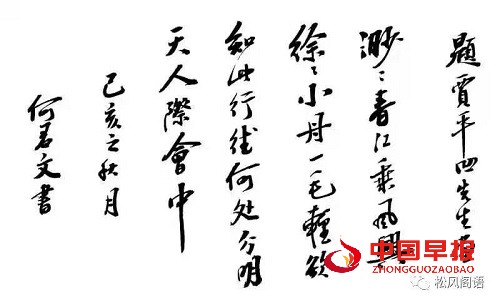 題賈平凹先生
渺々春江乘風
徐々小舟一毛輕欲
知此行往何处分明
天人際會中
己亥之秋月
何君文書
中国早报
ZHONGGUOZAOBAO
松风阁语